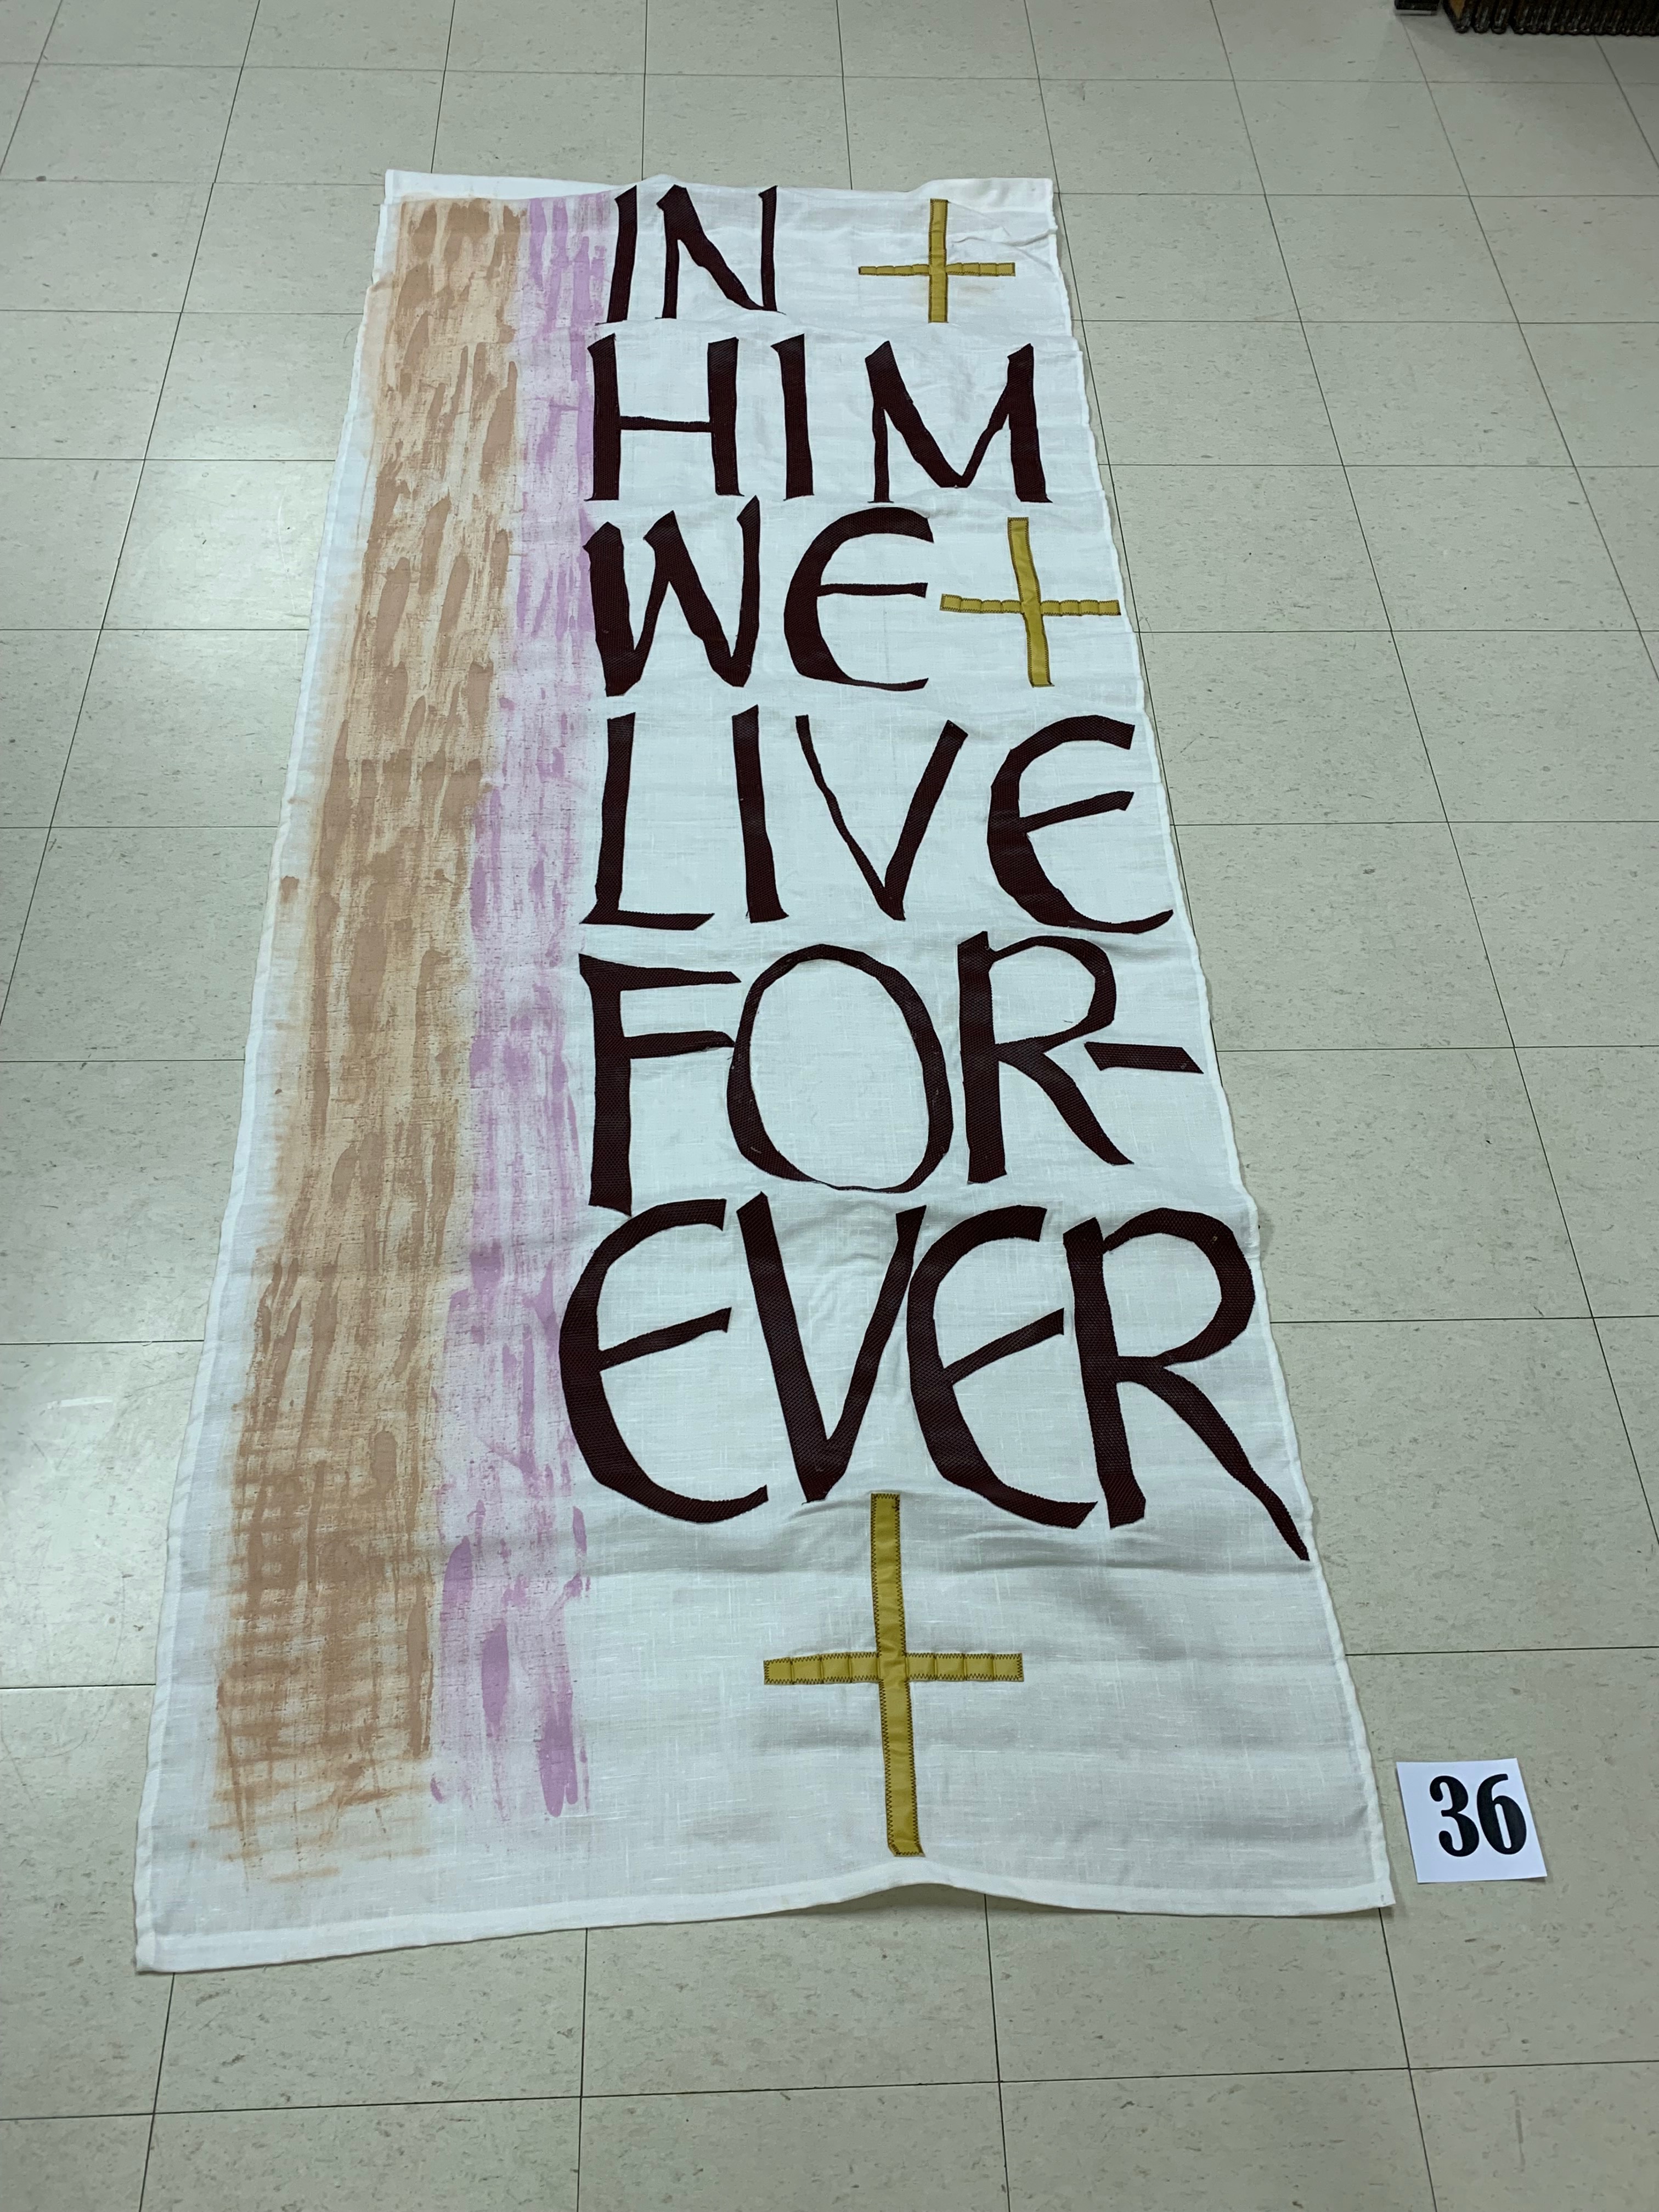 IN
HIM
WE
LIVE
FOR-
EVER
36